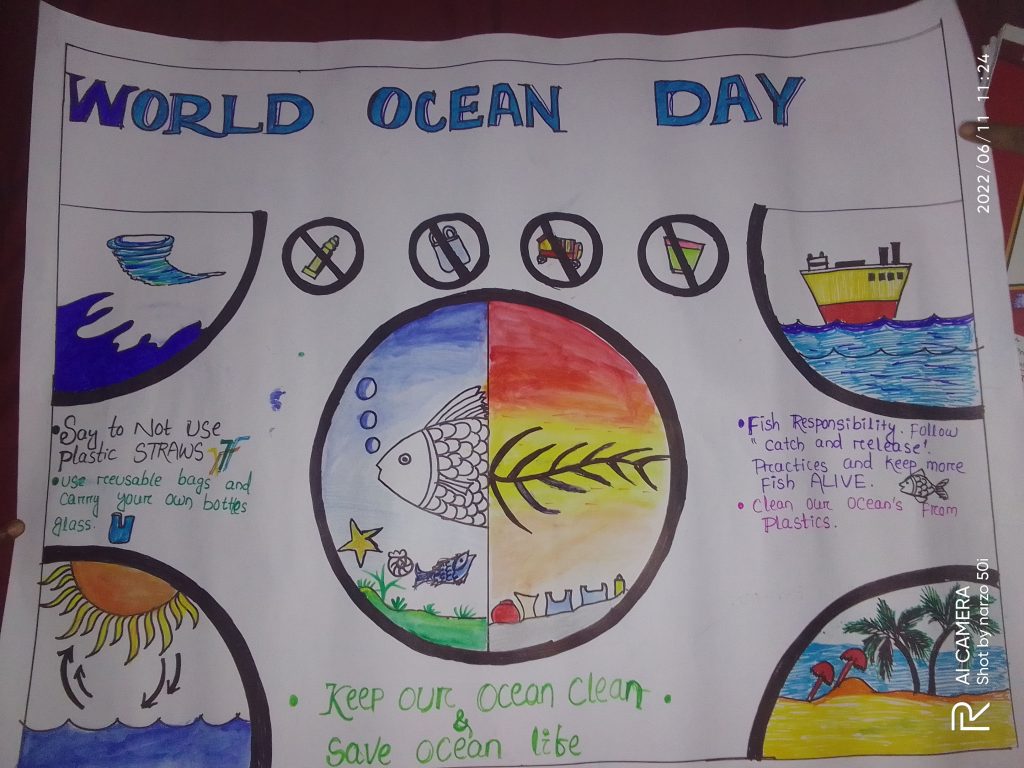 WORLD OCEAN DAY
• Say to Not Use
plastic STRAWS
• use reusable bags and
carry your own bottes
glass.
• Fish Responsibility. Follow
"catch and release".
Practices and keep more
Fish ALIVE.
• Clean our Ocean's From
Plastics.
• Keep our ocean Clean •
&
Save ocean life
2022/06/11 11:24
AI CAMERA
Shot by narzo 50i